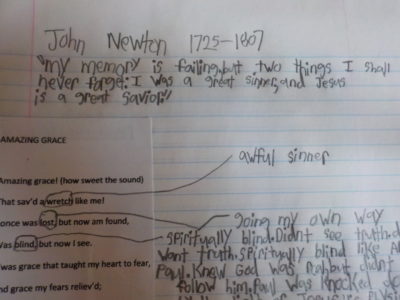 John Newton 1725-1807
"My memory is failing, but two things I shall
never forget: I was a great sinner, and Jesus
is a great Savior."
AMAZING GRACE
awful sinner
Amazing grace! (how sweet the sound)
That sav'd a wretch like me!
once was lost, but now am found,
Was blind, but now I see.
going my own way
spiritually blind. Didnt see truth. d
want truth. spiritually blind like A
Paul. Knew God was real but didn't
was grace that taught my heart to fear,
follow him. Paul was knocked of
and grace my fears reliev'd;